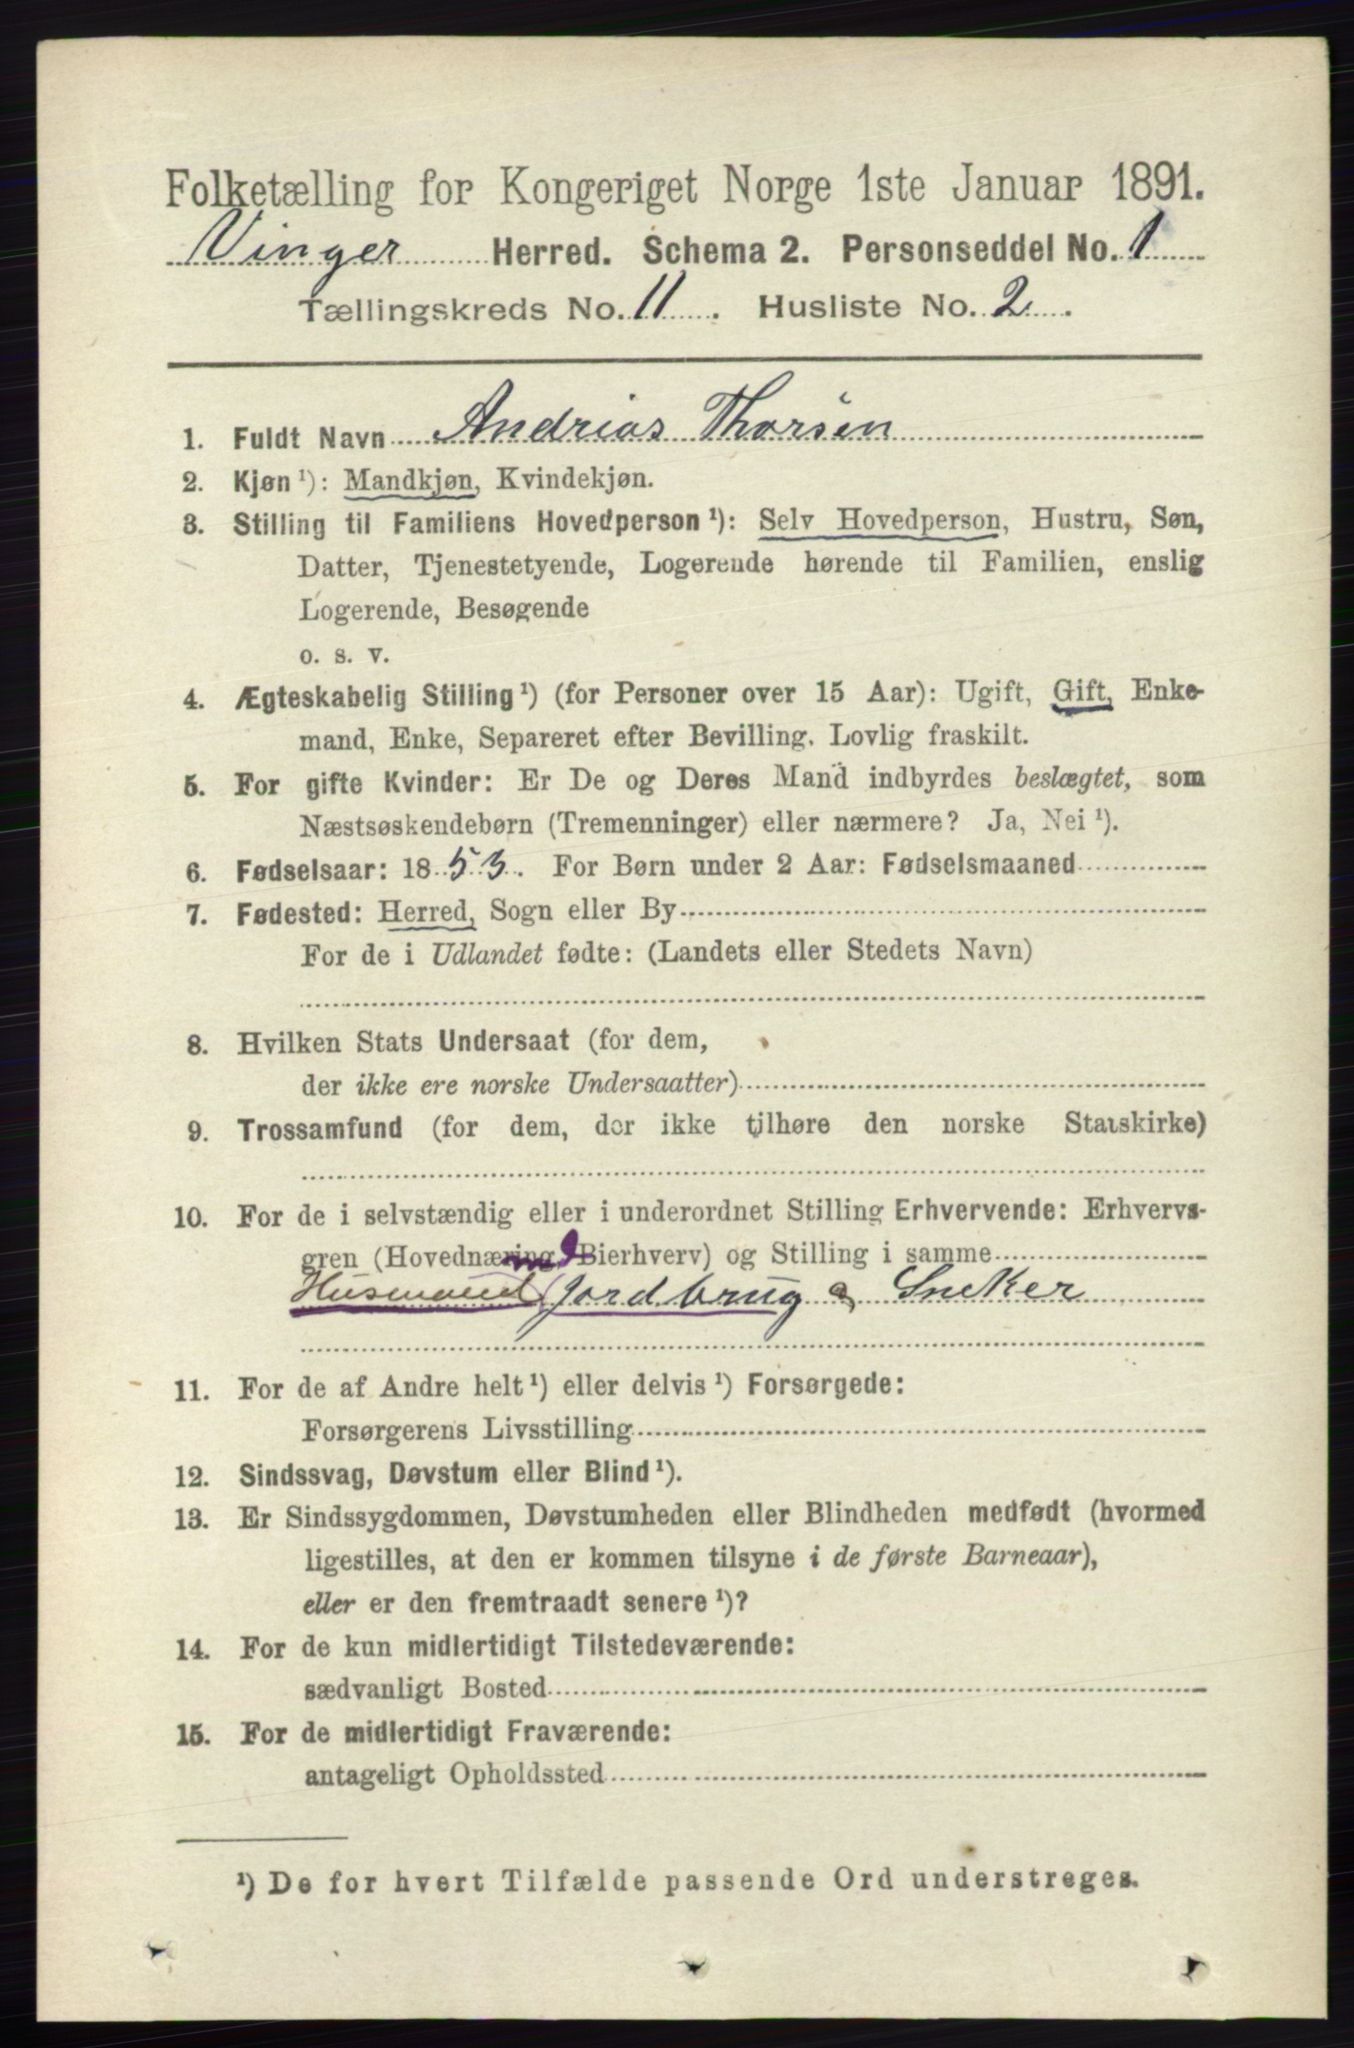 Folketælling for Kongeriget Norge 1ste Januar 1891.
Vinger Herred. Schema 2. Personseddel No. 1
Tællingskreds No. 11. Husliste No. 2.
1. Fuldt Navn Andrias Thorsen
2. Kjøn ¹): Mandkjøn, Kvindekjøn.
3. Stilling til Familiens Hovedperson ¹): Selv Hovedperson, Hustru, Søn,
Datter, Tjenestetyende, Logerende hørende til Familien, enslig
Logerende, Besøgende
o. s. v.
4. Ægteskabelig Stilling ¹) (for Personer over 15 Aar): Ugift, Gift, Enke-
mand, Enke, Separeret efter Bevilling. Lovlig fraskilt.
5. For gifte Kvinder: Er De og Deres Mand indbyrdes beslægtet, som
Næstsøskendebørn (Tremenninger) eller nærmere? Ja, Nei ¹).
6. Fødselsaar: 1853. For Børn under 2 Aar: Fødselsmaaned
7. Fødested: Herred, Sogn eller By
For de i Udlandet fødte: (Landets eller Stedets Navn)
8. Hvilken Stats Undersaat (for dem,
der ikke ere norske Undersaatter)
9. Trossamfund (for dem, der ikke tilhøre den norske Statskirke)
10. For de i selvstændig eller i underordnet Stilling Erhvervende: Erhvervs-
gren (Hovednæring, Bierhverv) og Stilling i samme
med
Husmand Jordbrug & Sneker
11. For de af Andre helt ¹) eller delvis ¹) Forsørgede:
Forsørgerens Livsstilling
12. Sindssvag, Døvstum eller Blind ¹).
13. Er Sindssygdommen, Døvstumheden eller Blindheden medfødt (hvormed
ligestilles, at den er kommen tilsyne i de første Barneaar),
eller er den fremtraadt senere ¹)?
14. For de kun midlertidigt Tilstedeværende:
sædvanligt Bosted
15. For de midlertidigt Fraværende:
antageligt Opholdssted
¹) De for hvert Tilfælde passende Ord understreges.